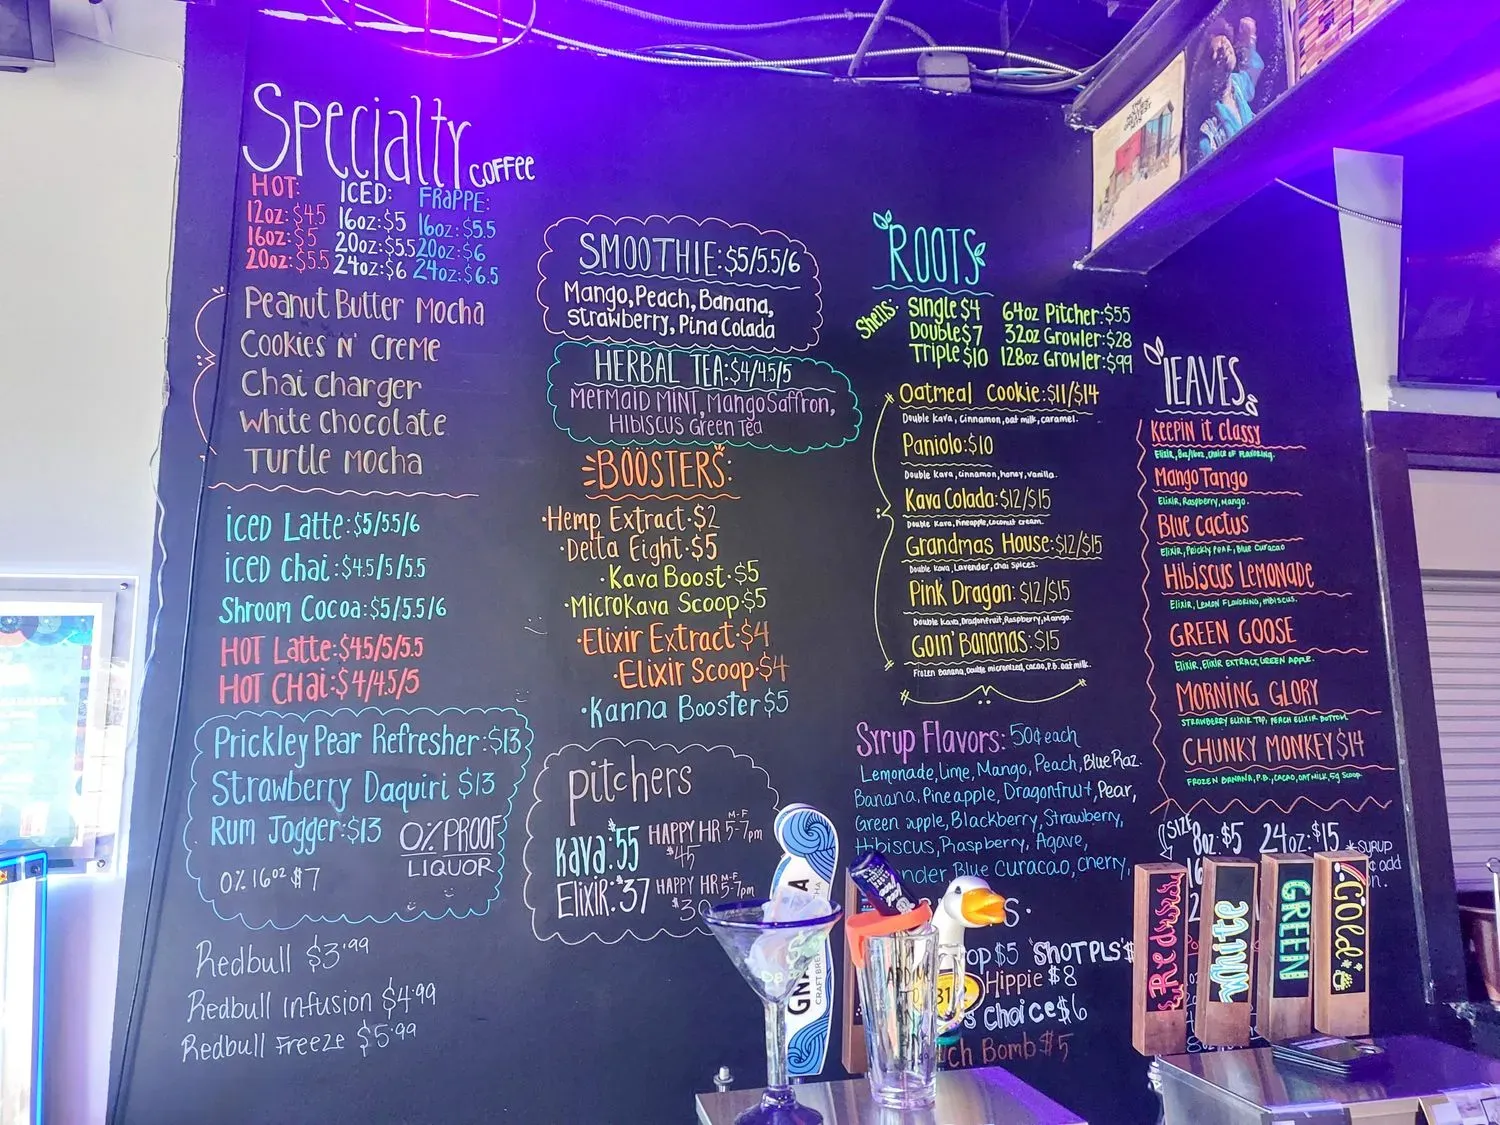 Specialty coffee
HOT: ICED: FRAPPE:
12oz:$4.5 16oz:$5 16oz:$5.5
16oz:$5 20oz:$5.5 20oz:$6
20oz:$5.5 24oz:$6 24oz:$6.5
Peanut Butter Mocha
Cookies N' Creme
Chai Charger
White Chocolate
Turtle Mocha
iced Latte:$5/5.5/6
iced chai:$4.5/5/5.5
Shroom Cocoa:$5/5.5/6
HOT Latte:$4.5/5/5.5
HOT CHai:$4/4.5/5
Prickley Pear Refresher:$13
Strawberry Daquiri $13
Rum Jogger:$13
0% PROOF
LIQUOR
0% 16oz $7
Redbull $3.99
Redbull infusion $4.99
Redbull Freeze $5.99
SMOOTHIE:$5/5.5/6
Mango, Peach, Banana,
Strawberry, Pina Colada
HERBAL TEA:$4/4.5/5
MerMaid MINT, Mango Saffron,
HIBISCUS Green Tea
BOOSTERS:
·Hemp Extract·$2
·Delta Eight·$5
·Kava Boost·$5
·MicroKava Scoop·$5
·Elixir Extract·$4
·Elixir Scoop·$4
·Kanna Booster $5
pitchers
Kava:$55 HAPPY HR M-F 5-7pm
$45
Elixir:$37 HAPPY HR M-F 5-7pm
$30
ROOTS
Shells: Single $4 64oz Pitcher:$55
Double $7 32oz Growler:$28
Triple $10 128oz Growler:$99
Oatmeal Cookie:$11/$14
Double Kava, cinnamon, oat milk, caramel.
Paniolo:$10
Double Kava, cinnamon, honey, vanilla.
Kava Colada:$12/$15
Double Kava, Pineapple, Coconut cream.
Grandmas House:$12/$15
Double Kava, Lavender, chai spices.
Pink Dragon:$12/$15
Double Kava, Dragonfruit, Raspberry, Mango.
Goin' Bananas:$15
Frozen Banana, Double micronized, cacao, P.B. oat milk.
Syrup Flavors: 50¢ each
Lemonade, Lime, Mango, Peach, Blue Raz.
Banana, Pineapple, Dragonfruit, Pear,
Green apple, Blackberry, Strawberry,
Hibiscus, Raspberry, Agave,
Blue Curacao, cherry,
$5 'SHOT PLS'
Hippie $8
Choice $6
Bomb $5
LEAVES
KEEPIN it classy
Elixir, 8oz/16oz, choice of flavoring.
Mango Tango
Elixir, Raspberry, Mango.
Blue cactus
Elixir, Prickly Pear, Blue Curacao
Hibiscus LEMONADE
Elixir, Lemon Flavoring, Hibiscus.
GREEN GOOSE
ELIXIR, ELIXIR EXTRACT, GREEN APPLE.
MORNING GLORY
STRAWBERRY ELIXIR TOP, PEACH ELIXIR BOTTOM.
CHUNKY MONKEY $14
FROZEN BANANA, P.B., CACAO, OAT MILK, 5g Scoop
SIZE 8oz:$5 24oz:$15
*syrup
add
Red
White
GREEN
GOLD